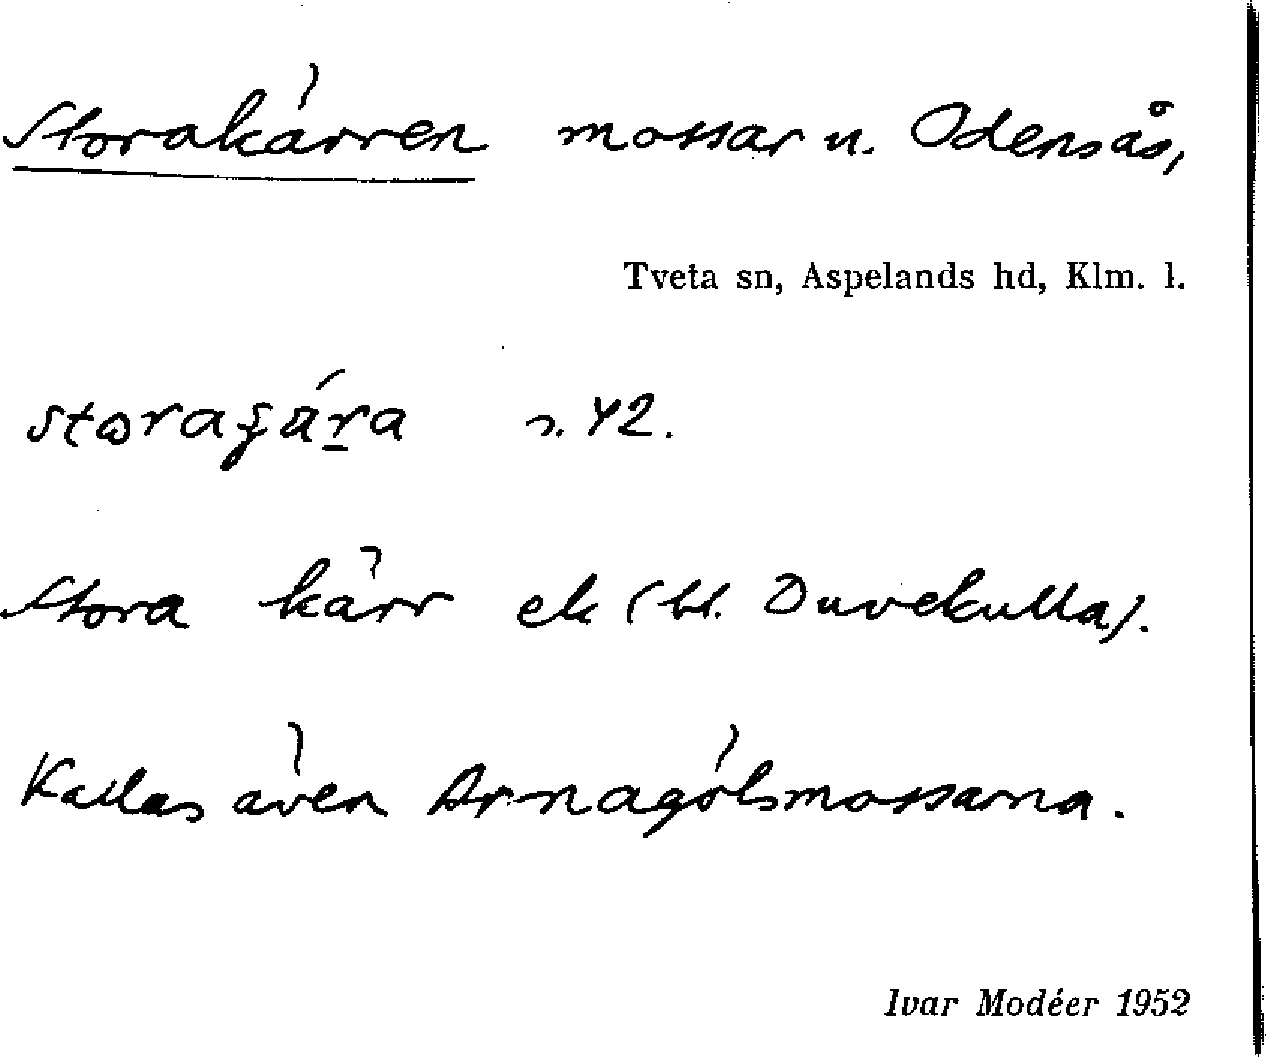 Storakärren mossar u. Odensås,
Tveta sn, Aspelands hd, Klm. l.
s. 42.
Stora kärr ek (bl. Duvekulla).
Kallas även Arnagölsmossarna.
Ivar Modéer 1952